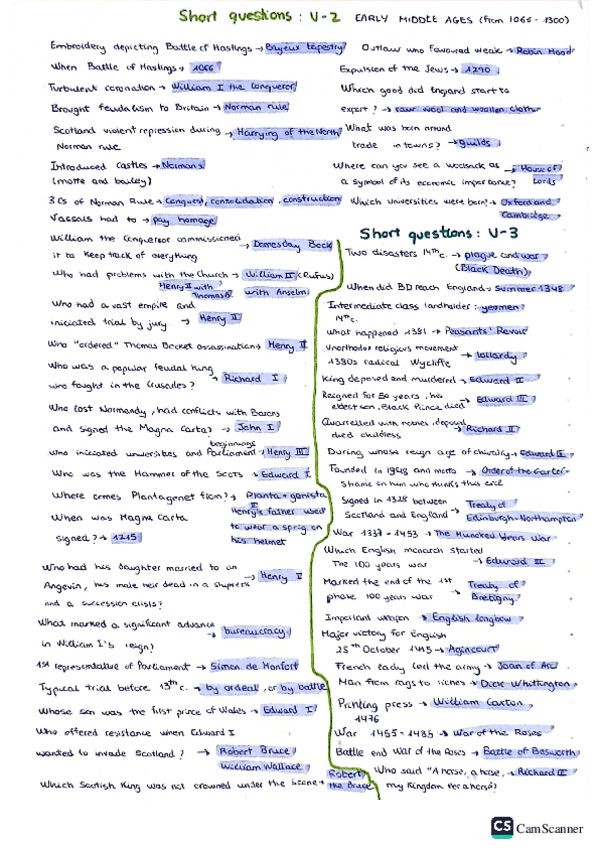 Short questions: U-2 EARLY MIDDLE AGES (from 1066 - 1300)
Embroidery depicting Battle of Hastings → Bayeux tapestry
When Battle of Hastings → 1066
Turbulent coronation → William I the Conqueror
Brought feudalism to Britain → Norman rule
Scotland violent repression during → Harrying of the North
Norman rule
Introduced castles → Normans
(motte and bailey)
3 Cs of Norman Rule → Conquest, consolidation, construction
Vassals had to → pay homage
William the Conqueror commissioned → Domesday Book
it to keep track of everything
Who had problems with the Church → William II (Rufus)
Henry II with with Anselm
Thomas B.
Who had a vast empire and
iniciated trial by jury → Henry II
Who "ordered" Thomas Becket assassination → Henry II
Who was a popular feudal king
who fought in the Crusades? → Richard I
Who lost Normandy, had conflicts with Barons
and signed the Magna Carta → John I
beginnings
who iniciated universities and Parliament → Henry III
Who was the Hammer of the Scots → Edward I
Where comes Plantagenet from? → Planta + genista
Henry's father used
When was Magna Carta to wear a sprig on
signed? → 1215 his helmet
Who had his daughter married to an
Angevin, his male heir dead in a shipwreck → Henry I
and a succession crisis?
What marked a significant advance
in William I's reign? → bureaucracy
1st representative of Parliament → Simon de Monfort
Typical trial before 13th c. → by ordeal, or by battle
Whose son was the first prince of Wales → Edward I
Who offered resistance when Edward I
wanted to invade Scotland? → Robert Bruce
William Wallace
Which Scottish King was not crowned under the stone → Robert the Bruce
Outlaw who favoured weak → Robin Hood
Expulsion of the Jews → 1290
Which good did England start to
export? → raw wool and woollen cloth
What was born around
trade in towns? → guilds
Where can you see a woolsack as → House of
a symbol of its economic importance? Lords
Which universities were born? → Oxford and
Cambridge
Short questions: U-3
Two disasters 14th c. → plague and war
(Black Death)
When did BD reach England → Summer 1348
Intermediate class landholder: yeomen
14th c.
What happened 1381 → Peasants' Revolt
Unorthodox religious movement
1380s radical Wycliffe → lollardy
King deposed and murdered → Edward II
Reigned for 50 years, his
eldest son, Black Prince died → Edward III
Quarrelled with nobles, deposed
died childless → Richard II
During whose reign age of chivalry → Edward III
Founded in 1348 and motto → Order of the Garter
Shame on him who thinks this evil
Signed in 1328 between → Treaty of
Scotland and England Edinburgh-Northampton
War 1337 - 1453 → The Hundred Years War
Which English monarch started
The 100 years war → Edward III
Marked the end of the 1st → Treaty of
phase 100 years war Bretigny
Important weapon → English longbow
Major victory for English
25th October 1415 → Agincourt
French lady led the army → Joan of Arc
Man from rags to riches → Dick Whittington
Printing press → William Caxton
1476
War 1455 - 1485 → War of the Roses
Battle end War of the Roses → Battle of Bosworth
Who said "A horse, a horse, → Richard III
my Kingdom for a horse?
CS CamScanner